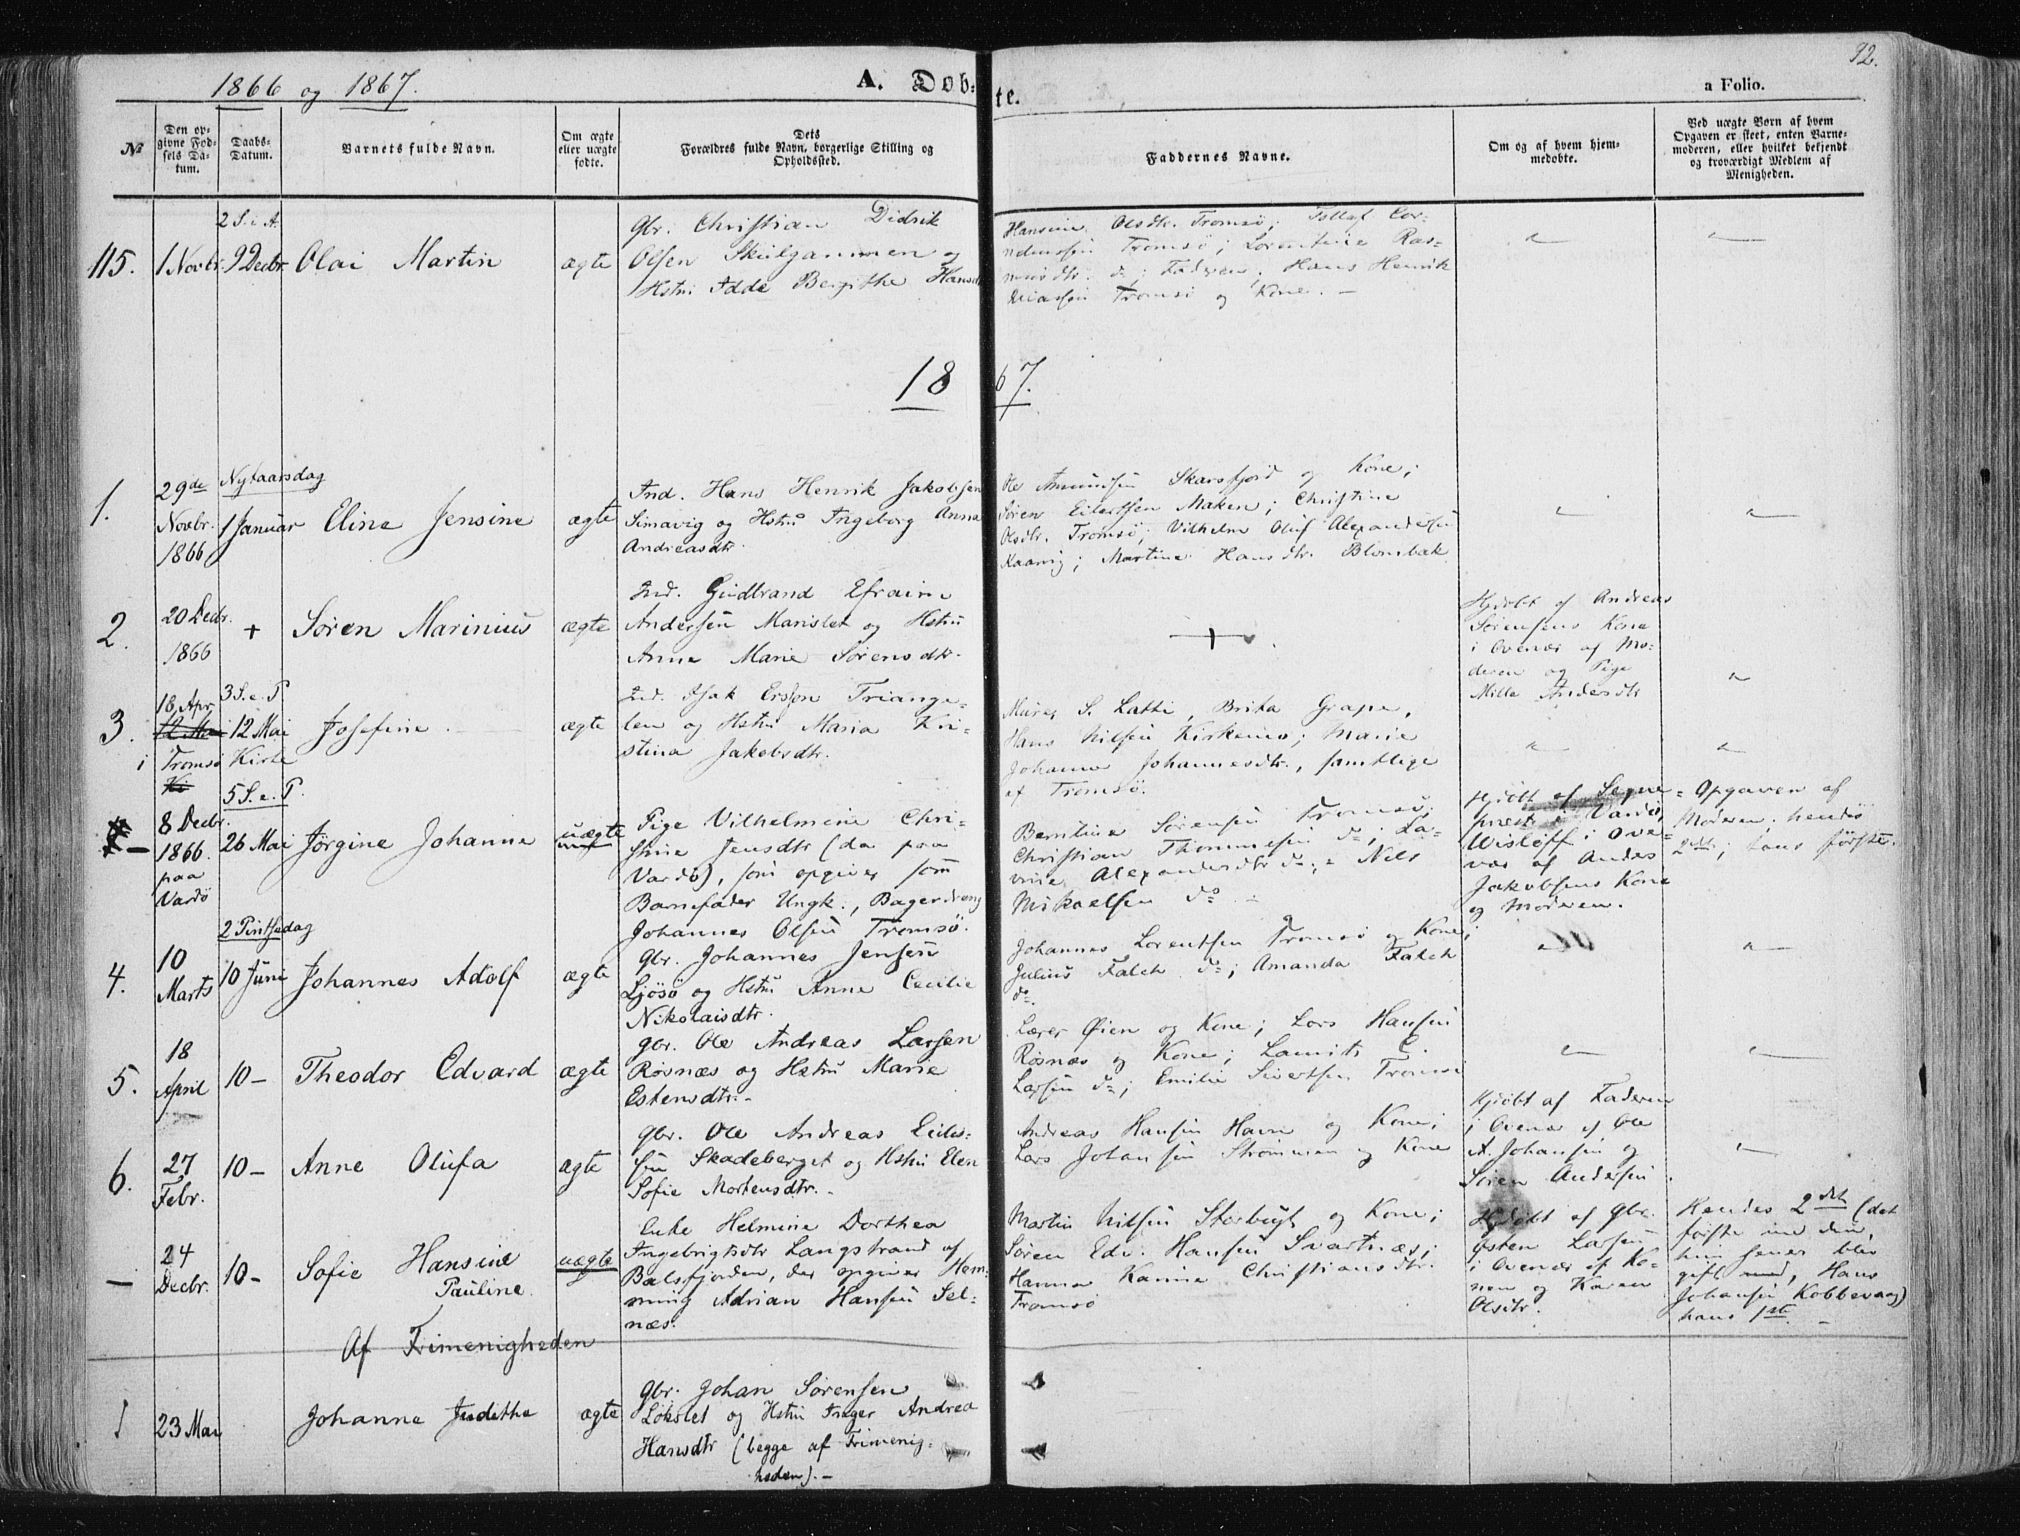 1866 og 1867.
A. Døb-
te.
a Folio.
92.
№
Den op-
givne Fød-
sels Da-
tum.
Daabs-
Datum.
Barnets fulde Navn.
Om ægte
eller uægte
fødte.
Dets
Forældres fulde Navn, borgerlige Stilling og
Opholdssted.
Faddernes Navne.
Om og af hvem hjem-
medøbte.
Ved uægte Børn af hvem
Opgaven er skeet, enten Barne-
moderen, eller hvilket bekjendt
og troværdigt Medlem af
Menigheden.
115.
1 Novbr.
2 S. i A.
9 Decbr.
Olai Martin
ægte
Gbr. Christian Didrik
Olsen Skulgammen og
Hstru Adde Bergithe Hansdtr
Hansine Olsdtr. Tromsø; Tollef
Tromsø; Lorentine Ras-
musdtr. do; Faderen, Hans Henrik
Tromsø og Kone. –
18
67.
1.
29de
Novbr.
1866
Nytaarsdag
1 Januar
Eline Jensine
ægte
Ind. Hans Henrik Jakobsen
Simavig og Hstru Ingeborg Anna
Andreasdtr.
Ole Amundsen Skarsfjord og Kone;
Søren Eilertsen Maken; Christine
Olsdtr. Tromsø; Vilhelm Oluf Alexandersen
Kaavig; Martine Hansdtr. Blombak
2.
20 Decbr.
1866
+
Søren Marinius
ægte
Ind. Gudbrand Efraim
Andersen Marislet og Hstru
Anne Marie Sørensdtr.
+
Hjdøbt af Andreas
Sørensens Kone
i Overvær af Mo-
deren og Pige
Mille Andersdtr
3.
18 Apr
12 Mai
i Tromsø Kirke
Ki
3 S. e. P
12 Mai
Josefine.
ægte
Ind. Isak Ersson Triange-
len og Hstru Maria Kri-
stina Jakobsdtr.
S. Latti, Brita Grape,
Hans Nilsen Kirkenes; Marie
Johanna Johannesdtr., samtlige
af Tromsø.
–
8 Decbr.
1866.
paa
Vardø
5 S. e. P.
26 Mai
Jørgine Johanne
uægte
Pige Vilhelmine Chri-
stine Jensdtr (da paa
Vardø), som opgiver som
Barnefader Ungk., Bagerdreng
Johannes Olsen Tromsø.
Berntine Sørensen Tromsø;
Christian Thommesen do; La-
vine Alexandersdtr do; Nils
Mikaelsen do
Hjdøbt af Sogne-
præst i Vardø,
Wisløff i Over-
vær af Anders
Jakobsens Kone
og Moderen.
Opgaven af
Moderen; hendes
2det; hans første.
4.
10
Marts
2 Pintsedag
10 Juni
Johannes Adolf
ægte
Gbr. Johannes Jensen
Ljøsø og Hstru Anne Cecilie
Nikolaisdtr.
Johannes Lorentsen Tromsø og Kone;
Julius Falch do; Amanda Falch
do.
5.
18
April
10 –
Theodor Edvard
ægte
Gbr. Ole Andreas Larsen
Røsnæs og Hstru Marie
Estensdtr. –
Lærer Øien og Kone; Lars Hansen
Røsnæs og Kone; Laurits E.
Larsen do; Emilie Sivertsen Tromsø
6.
27
Febr.
10 –
Anne Olufa
ægte
Gbr. Ole Andreas
Skadeberget og Hstru Elen
Sofie Mortensdtr. –
Andreas Hansen Havn og Kone;
Lars Johansen Strømmen og Kone
Hjdøbt af Faderen
i Overvær af Ole
A. Johansen og
Søren Andersen.
–
24
Decbr.
10 –
Sofie Hansine
Pauline.
uægte
Enke Helmine Dorthea
Ingebrigtsdtr Langstrand af
Balsfjorden, der opgiver Hem-
ming Adrian Hansen Sel-
næs.
Martin Nilsen Storbugt og Kone;
Søren Edv. Hansen Svartnæs;
Hanna Karine Christiansdtr.
Tromsø
Hjdøbt af Gbr.
Østen Larsen
i Overvær af Ko-
nen og Karen
Olsdtr.
Hendes 2det (det
første med den,
hun senere blev
gift med, Hans
Johansen Kobbevaag)
hans 1ste. –
Af Frimenigheden
1
23 Mai
Johanne Judithe
ægte
Gbr. Johan Sørensen
Løkslet og Hstru Inger Andrea
Hansdtr (begge af Frimenig-
heden). –